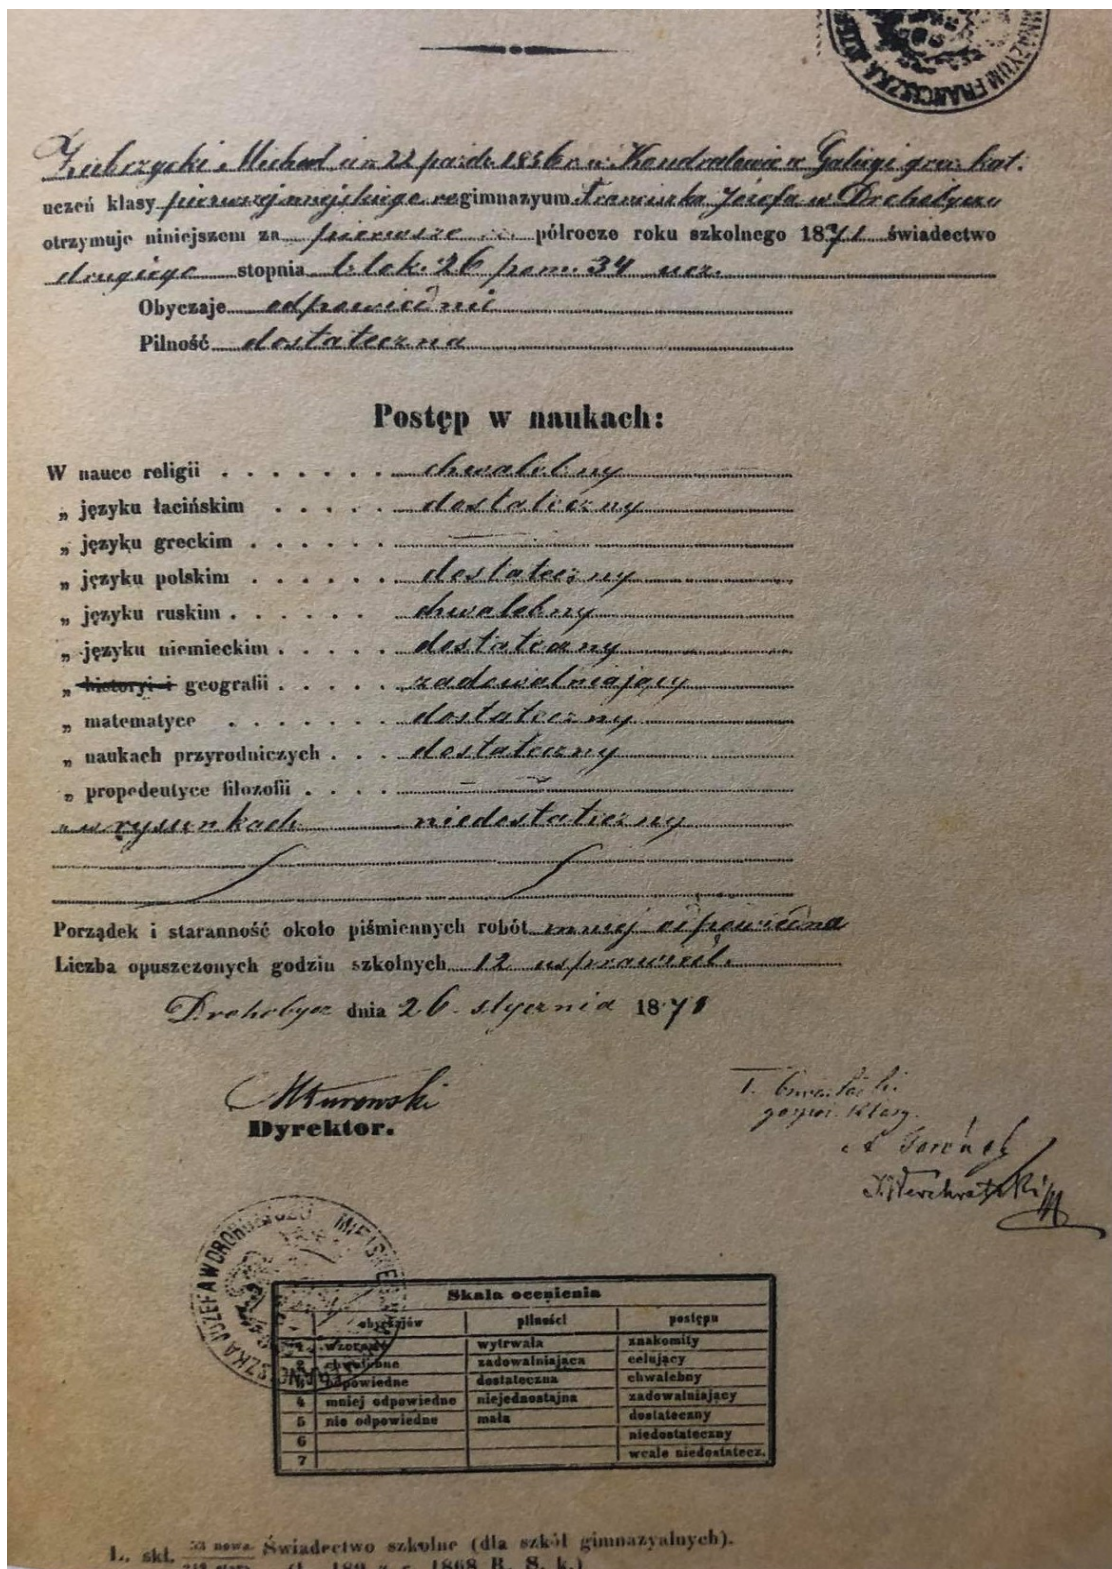 GIMNAZYUM FRANCISZKA
Zubrzycki Michał ur. 22 paźdz. 1856 r. w Kondratowie w Galicyi grec. kat.
uczeń klasy pierwszej miejskiego re gimnazyum Franciszka Józefa w Drohobyczu
otrzymuje niniejszem za pierwsze półrocze roku szkolnego 1871 świadectwo
drugiego stopnia z lok. 26 pom. 34 ucz.
Obyczaje odpowiednie
Pilność dostateczna
Postęp w naukach:
W nauce religii . . . . . . . chwalebny
„ języku łacińskim . . . . . dostateczny
„ języku greckim . . . . . .
„ języku polskim . . . . . . dostateczny
„ języku ruskim . . . . . . . chwalebny
„ języku niemieckim . . . . . dostateczny
„ historyi i geografii . . . . . zadowalniający
„ matematyce . . . . . . . dostateczny
„ naukach przyrodniczych . . . dostateczny
„ propedeutyce filozofii . . . .
„ w rysunkach niedostateczny
Porządek i staranność około piśmiennych robót mniej odpowiedna
Liczba opuszczonych godzin szkolnych 12 usprawiedl.
Drohobycz dnia 26. stycznia 1871
Dyrektor.
gospod. klasy.
I. Werchratski
Skala ocenienia
obyczajów pilności postępu
1 wzorowe wytrwała znakomity
2 chwalebne zadowalniająca celujący
3 odpowiedne dostateczna chwalebny
4 mniej odpowiedne niejednostajna zadowalniający
5 nie odpowiedne mała dostateczny
6 niedostateczny
7 wcale niedostatecz.
L. skł. 53 nowa Świadectwo szkolne (dla szkół gimnazyalnych).
1868 R. S. k.)